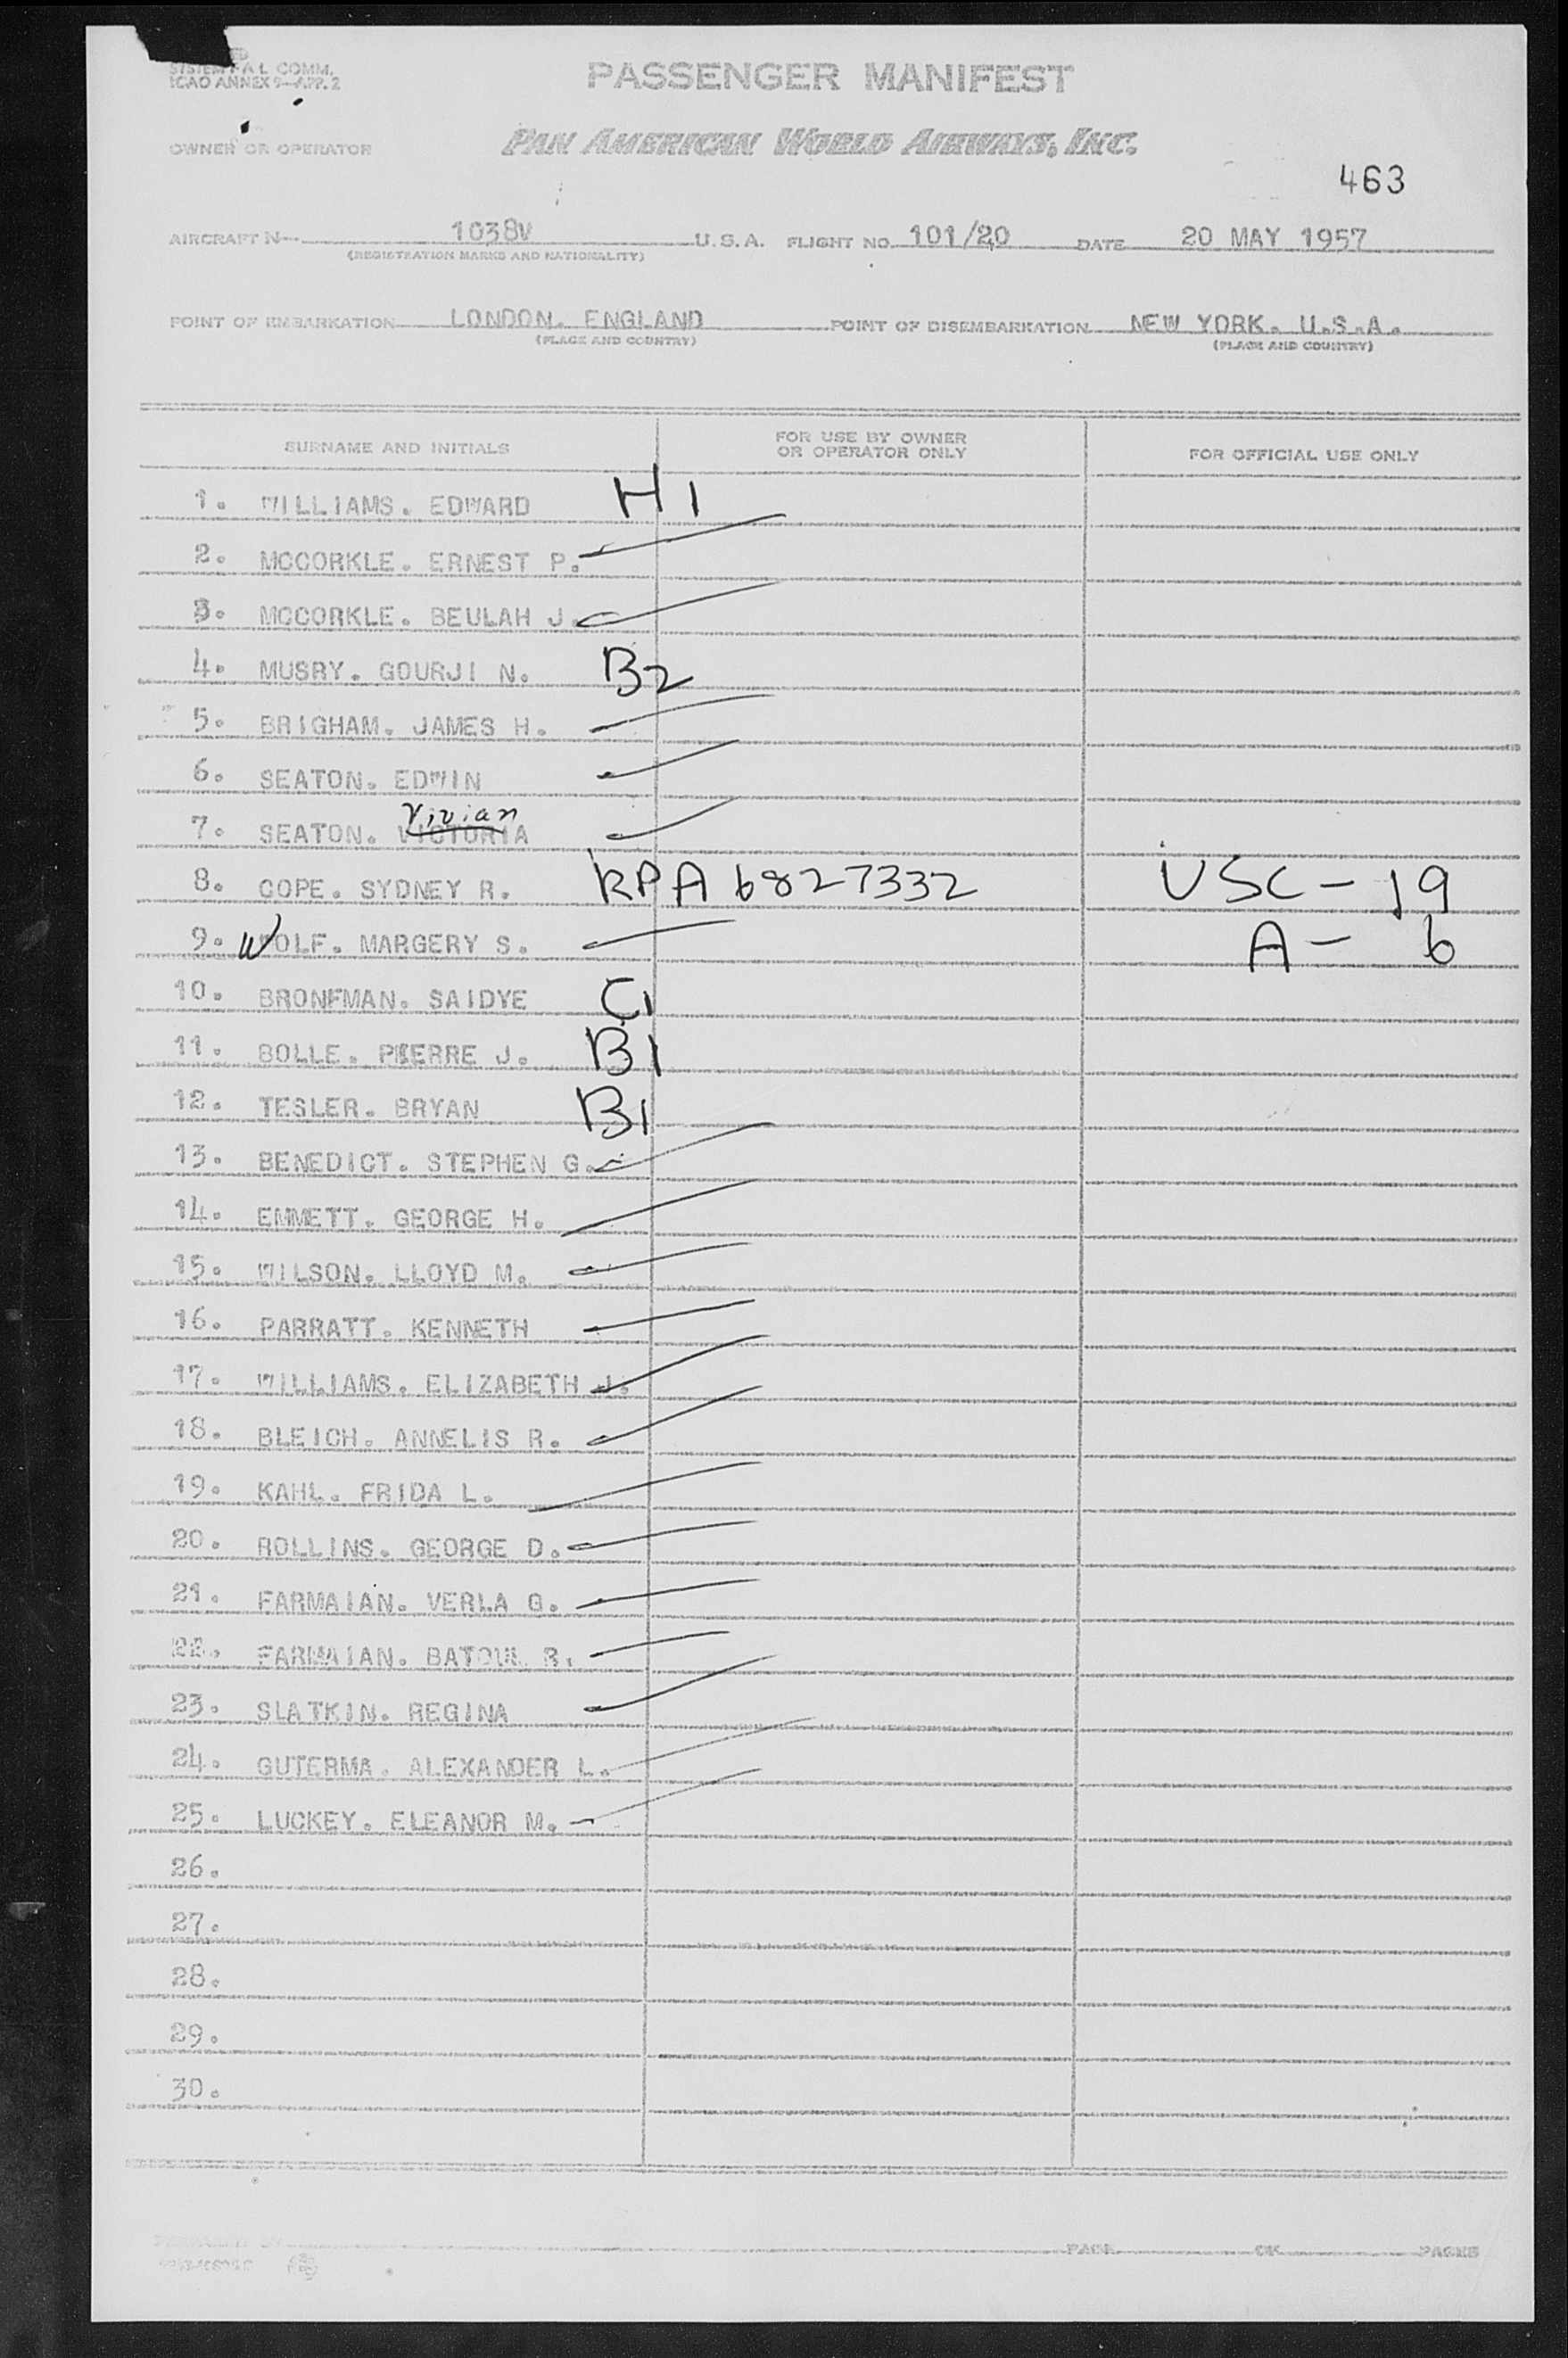 SYSTEM F A L COMM.
ICAO ANNEX 9—APP. 2
PASSENGER MANIFEST
OWNER OR OPERATOR PAN AMERICAN WORLD AIRWAYS, INC.
463
AIRCRAFT N 1038V U.S.A. FLIGHT NO. 101/20 DATE 20 MAY 1957
(REGISTRATION MARKS AND NATIONALITY)
POINT OF EMBARKATION LONDON. ENGLAND POINT OF DISEMBARKATION NEW YORK. U.S.A.
(PLACE AND COUNTRY) (PLACE AND COUNTRY)
SURNAME AND INITIALS FOR USE BY OWNER OR OPERATOR ONLY FOR OFFICIAL USE ONLY
1. WILLIAMS. EDWARD H1
2. MCCORKLE. ERNEST P.
3. MCCORKLE. BEULAH J.
4. MUSRY. GOURJI N. B2
5. BRIGHAM. JAMES H.
6. SEATON. EDWIN
Vivian
7. SEATON. VICTORIA
8. COPE. SYDNEY R. RPA 6827332 USC - 19
9. WOLF. MARGERY S. A - 6
10. BRONFMAN. SAIDYE C1
11. BOLLE. PIERRE J. B1
12. TESLER. BRYAN B1
13. BENEDICT. STEPHEN G.
14. EMMETT. GEORGE H.
15. WILSON. LLOYD M.
16. PARRATT. KENNETH
17. WILLIAMS. ELIZABETH J.
18. BLEICH. ANNELIS R.
19. KAHL. FRIDA L.
20. ROLLINS. GEORGE D.
21. FARMAIAN. VERLA G.
22. FARMAIAN. BATOUL R.
23. SLATKIN. REGINA
24. GUTERMA. ALEXANDER L.
25. LUCKEY. ELEANOR M.
26.
27.
28.
29.
30.
PAGE OF PAGES